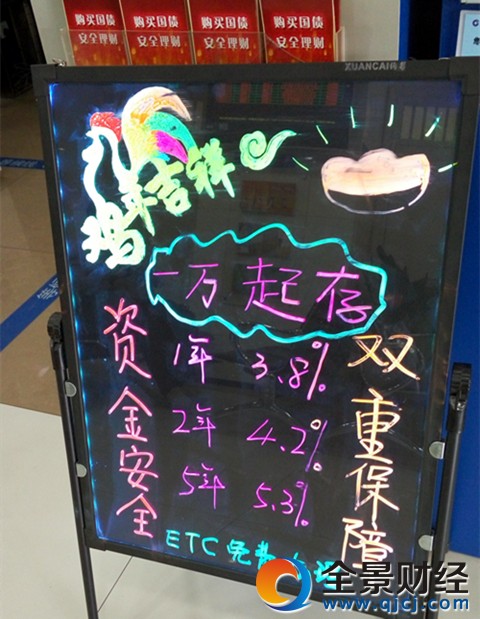 购买国债
安全理财
购买国债
安全理财
购买国债
安全理财
购买国债
安全理财
XUANCAI
鸡年吉祥
一万起存
资金安全
1年 3.8%
2年 4.2%
5年 5.3%
双重保障
ETC免费
全景财经
www.qjcj.com